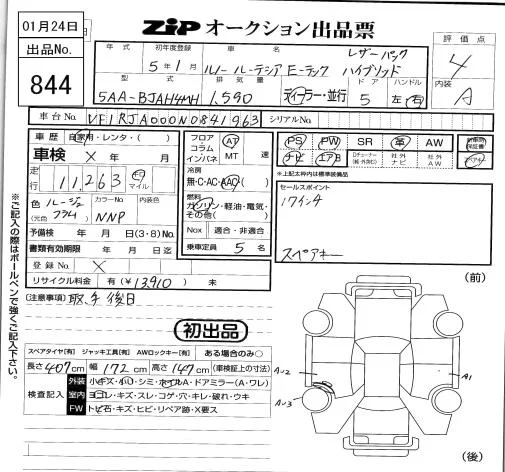 01月24日
出品No.
844
ZIP オークション出品票
評価点
4
内装
A
年式 初年度登録 車名
5年1月 ルノー ルーテシア E-テック ハイブリッド
レザーパック
型式 排気量 ドア ハンドル
5AA-BJAH4MH 1,590 ディーラー・並行 5 左・右
車台No. VF1RJA000N0841963 シリアルNo.
車歴 自家用・レンタ・( )
車検 ×年 月
走行 11,263 キロ マイル
色 カラーNo. 内装色
(元色) NNP
予備検 年 月 日(3・8)No.
書類有効期限 年 月 日迄
登録No. ×
リサイクル料金 有(¥13,910) 未
フロア
コラム
インパネ
AT
MT 速
冷房
無・C・AC・AAC
燃料
ガソリン・軽油・電気・
その他( )
Nox 適合・非適合
乗車定員 5 名
PS PW SR 革 AW
ナビ エアB Dチューナー 社外ナビ 社外AW
新車時保証書
スペアキー
※上記太枠内は標準装備品
セールスポイント
17インチ
スペアキー
(注意事項) 取、手 後日
初出品
スペアタイヤ[有] ジャッキ工具[有] AWロックキー[有] ある場合のみ○
長さ 407cm 幅 172cm 高さ 147cm (車検証上の寸法)
検査記入
外装 小キズ・小U・シミ・ホイルA・ドアミラー(A・ワレ)
室内 ヨゴレ・キズ・スレ・コゲ・穴・キレ・破れ・ウキ
FW トビ石・キズ・ヒビ・リペア跡・X要ス
(前)
AU2
AU3
A1
(後)
※ご記入の際はボールペンで強くご記入下さい。